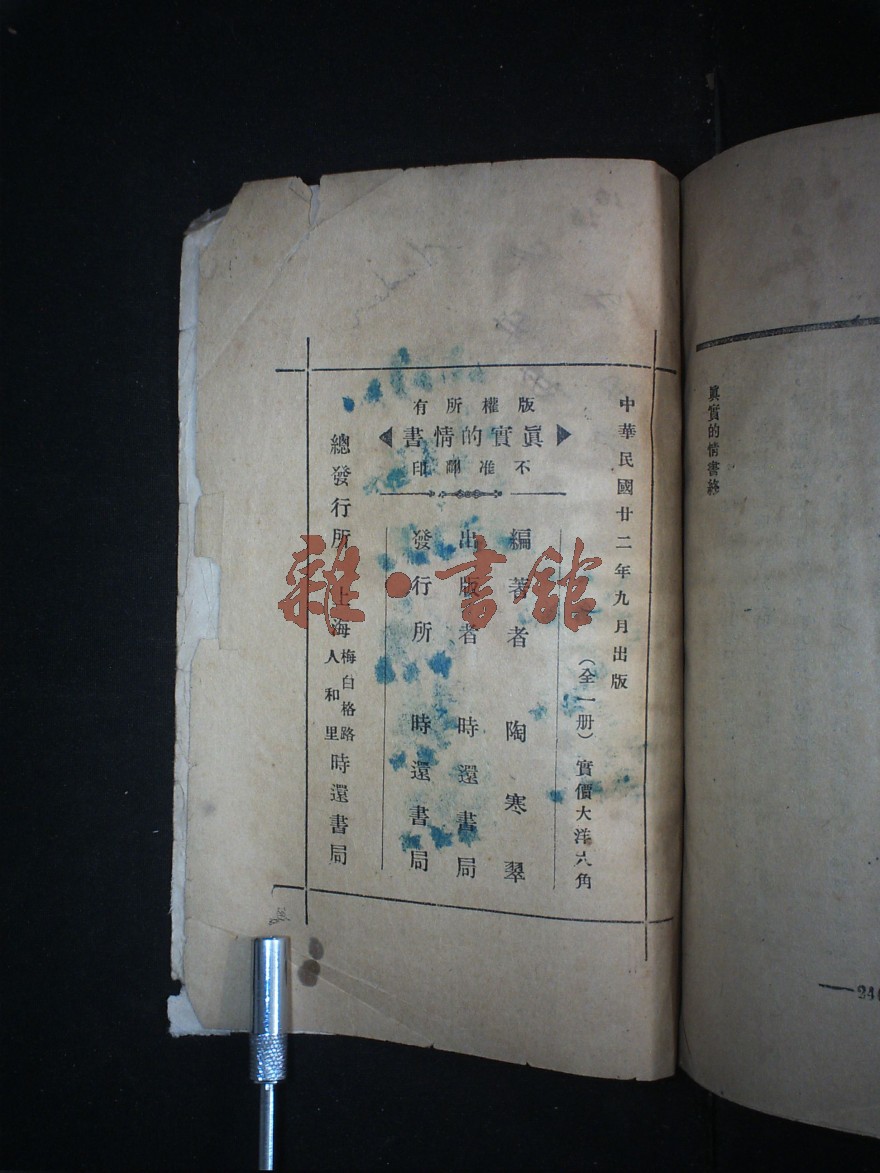 眞實的情書終
中華民國廿二年九月出版
版權所有
眞實的情書
不准翻印
(全一册) 實價大洋六角
編著者 陶寒翠
出版者 時還書局
發行所 時還書局
總發行所 上海梅白格路人和里 時還書局
雜·書館